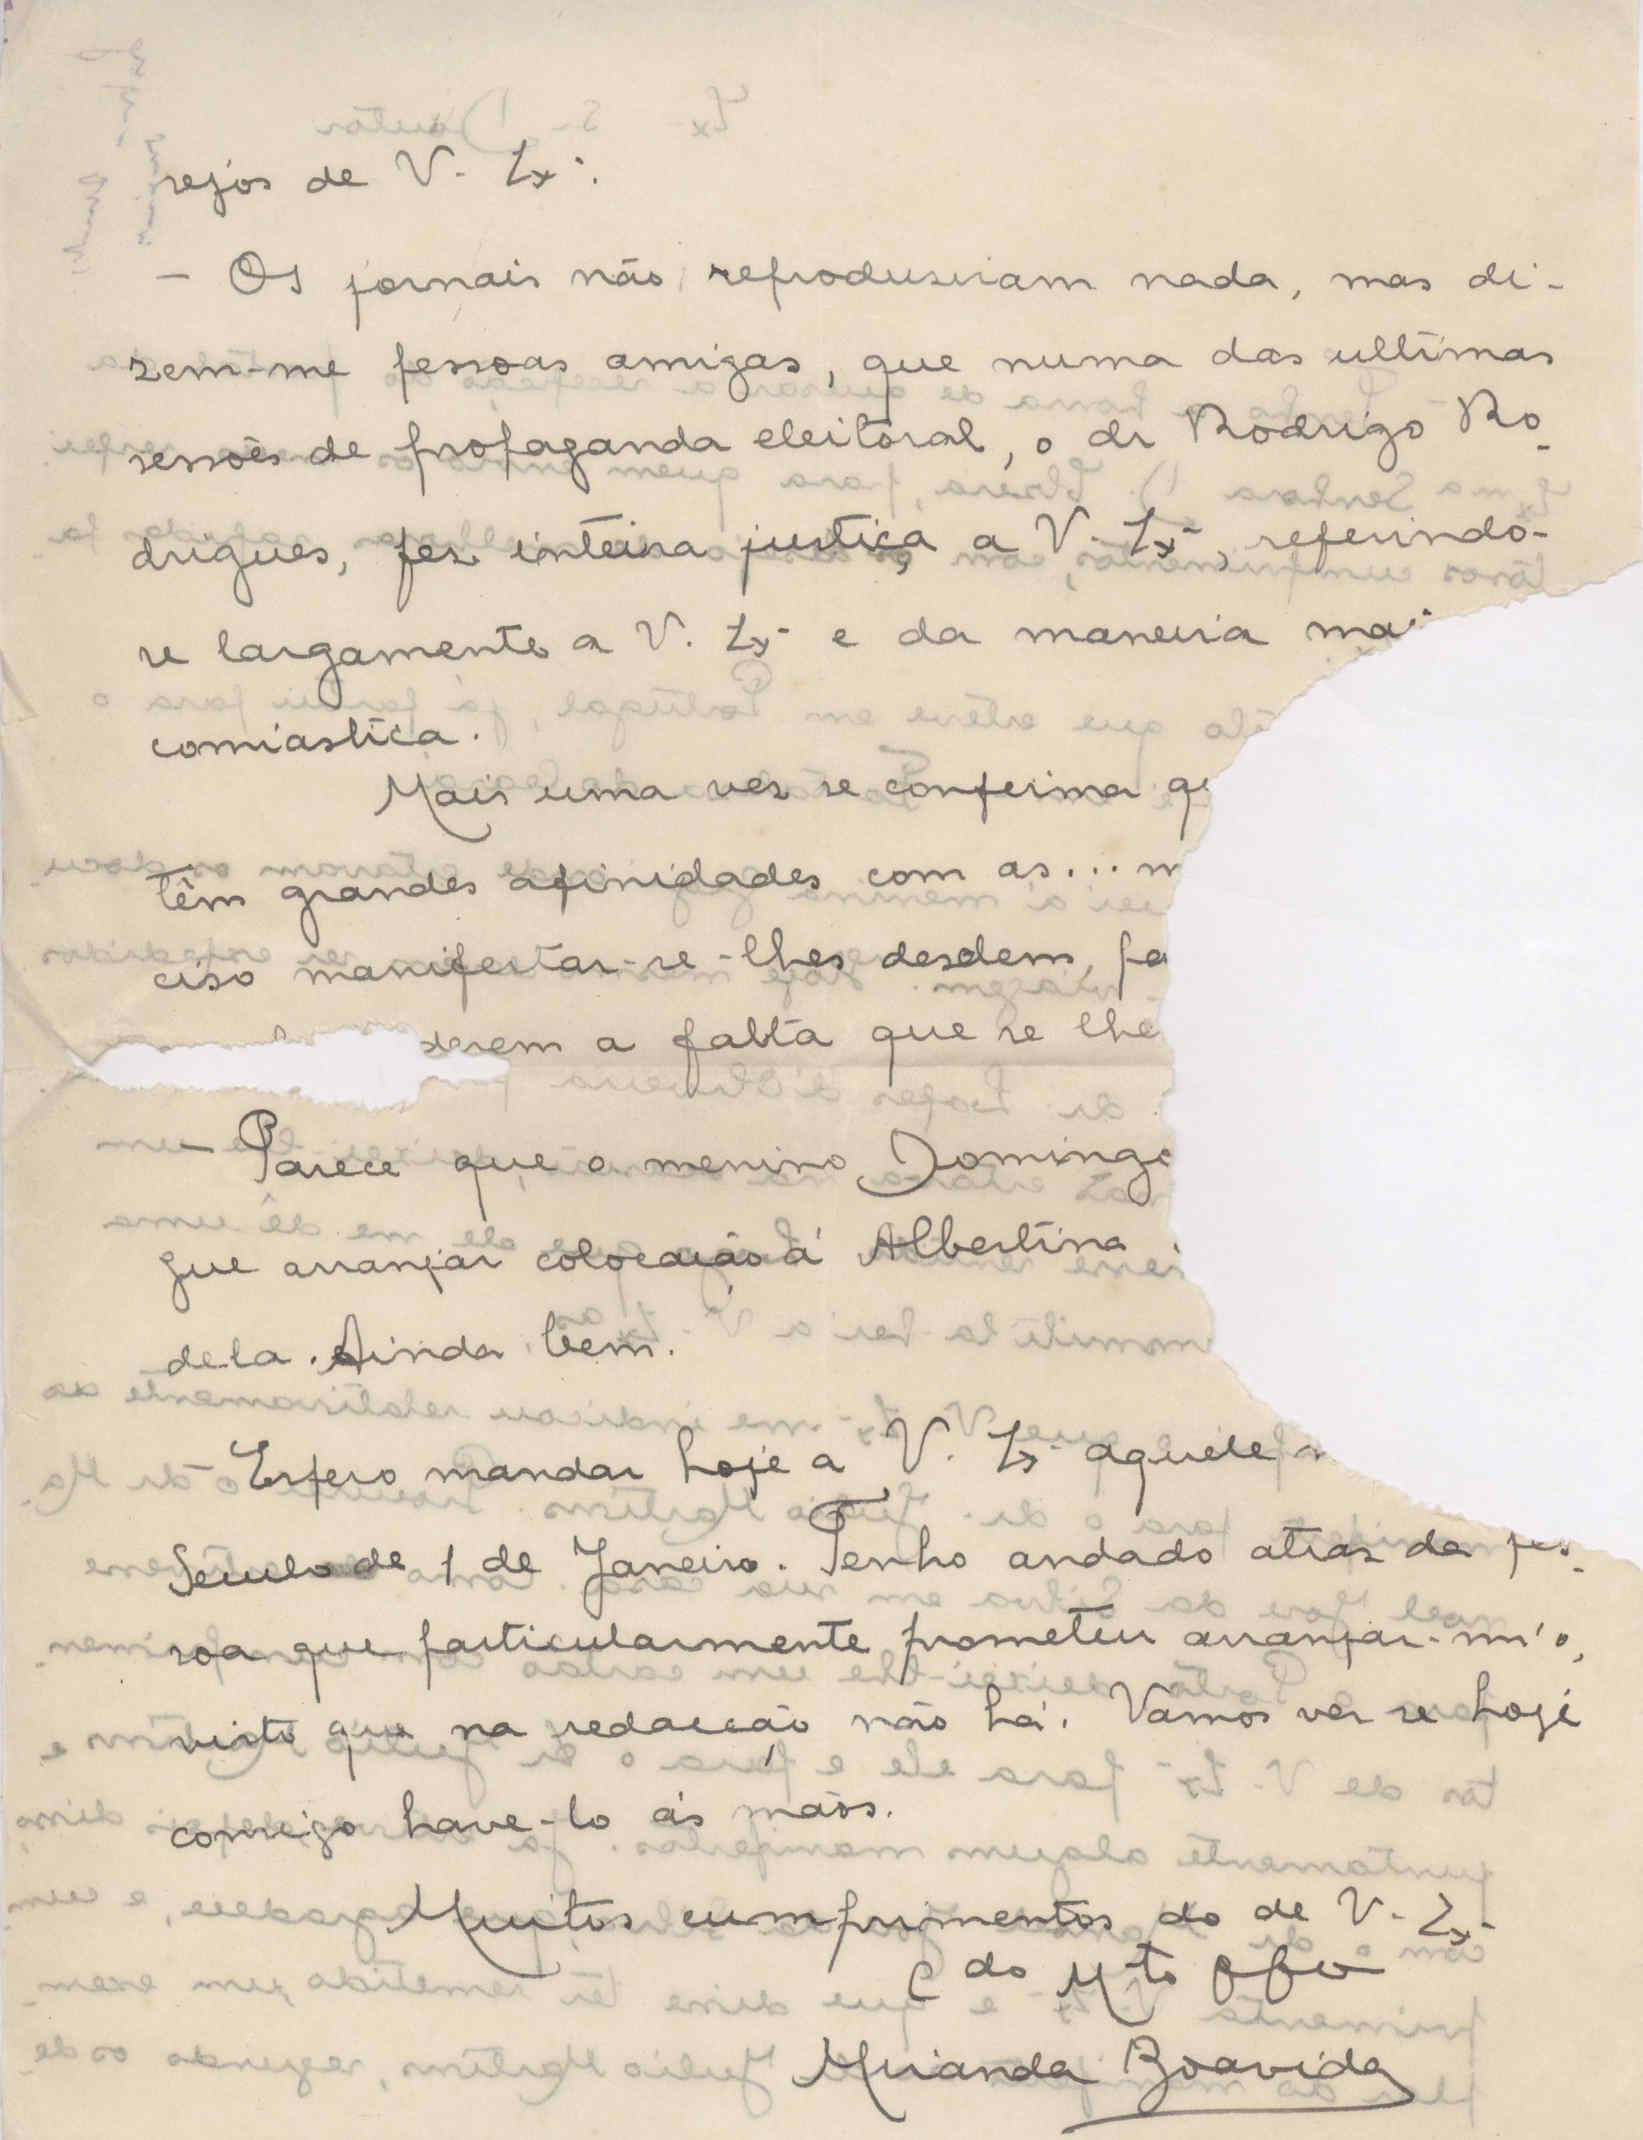 sejos de V. Exª.
— Os jornais não reproduziram nada, mas di-
zem-me pessoas amigas, que numa das ultimas
sessões de propaganda eleitoral, o dr Rodrigo Ro-
drigues, fez inteira justiça a V. Exª, referindo-
se largamente a V. Exª e da maneira mais
comiastica.
Mais uma vez se confirma
têm grandes afinidades com as...
ciso manifestar-se-lhes desdem,
a falta que se lhe
— Parece que o menino Domingo
gue arranjar colocação á Albertina
dela. Ainda bem.
Espero mandar hoje a V. Exª aquele
Seculo de 1 de Janeiro. Tenho andado atras da pes-
soa que particularmente prometeu arranjar-m'o,
visto que na redacção não há. Vamos ver se hoje
consigo have-lo ás mãos.
Muitos cumprimentos do de V. Exª
Cdo Mto Obro
Miranda Boavida